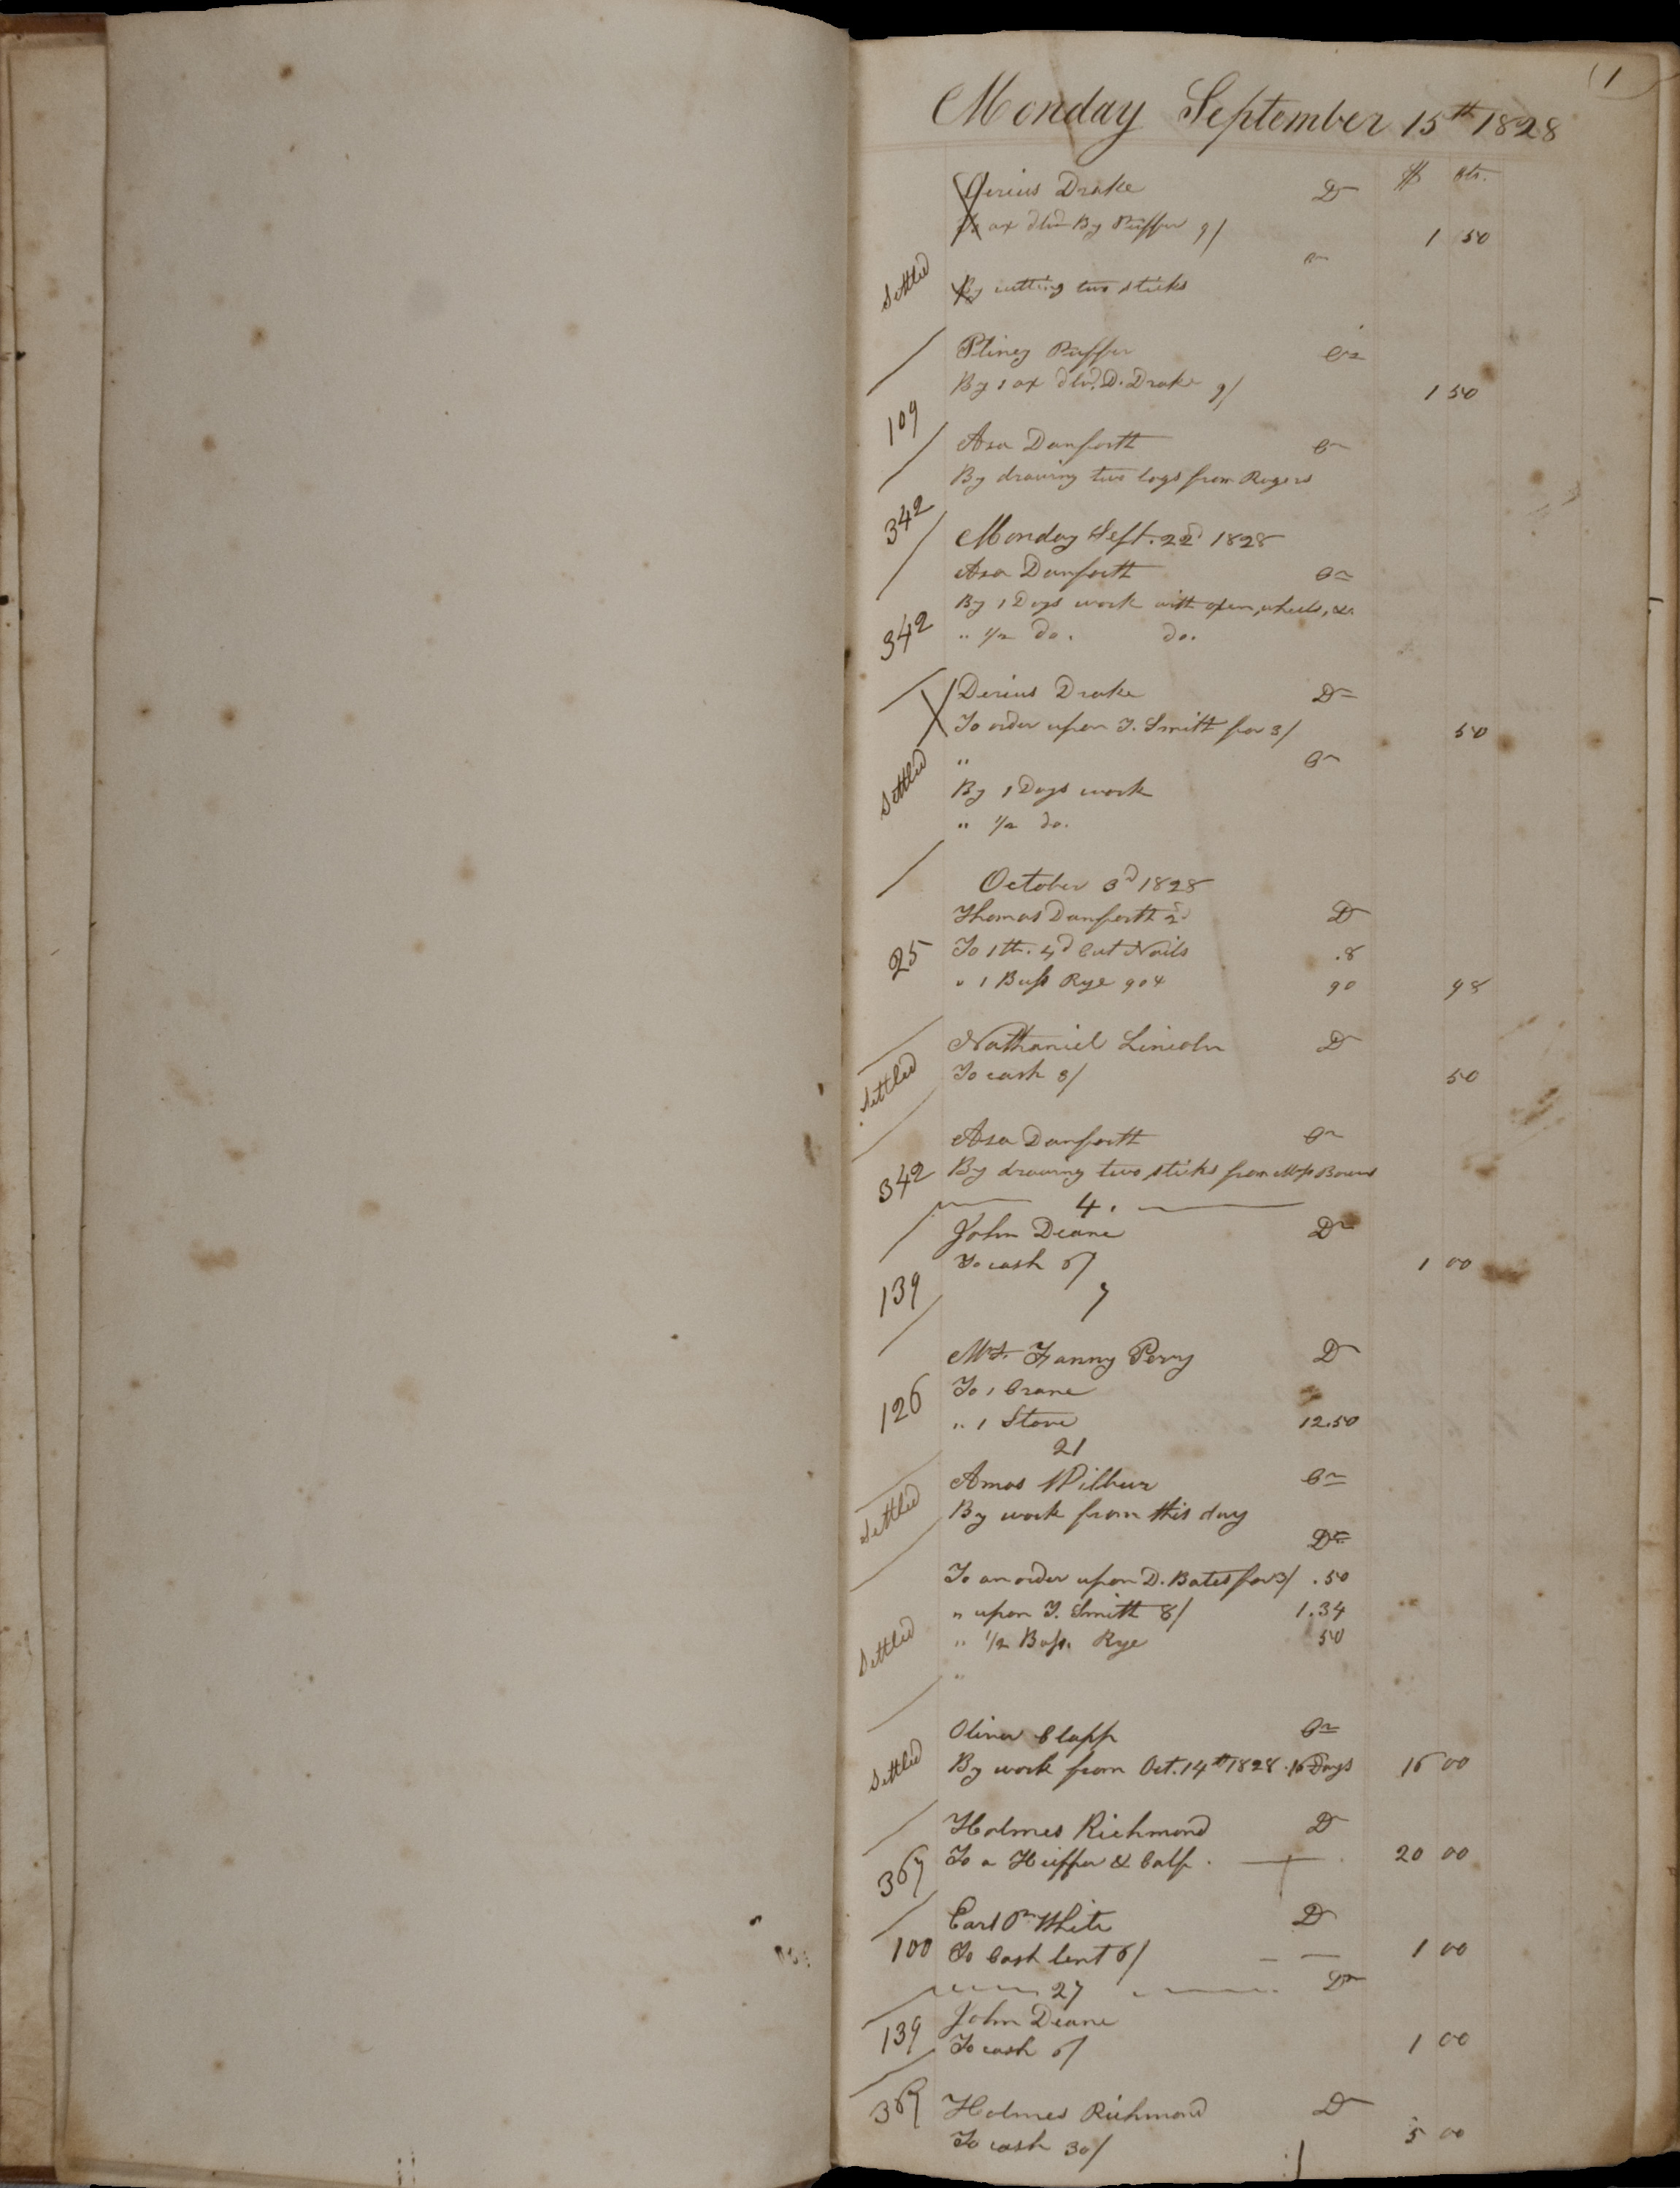 (1
Monday September 15th 1828
$ Cts.
Derius Drake Dr
To ax dlvd By Puffer 9/ 1 50
Cr
Settled By cutting two sticks
Pliney Puffer Cr
By 1 ax dlvd. D. Drake 9/ 1 50
109
Asa Danforth Cr
By drawing two logs from Rogers
342
Monday Sept. 22d 1828
Asa Danforth Cr
By 1 Days work with oxen, wheels, &c.
342 " 1/2 do. do.
Derius Drake Dr
To order upon T. Smith for 3/ 50
Settled " Cr
By 1 Days work
" 1/2 do.
October 3d 1828
Thomas Danforth 2d Dr
25 To 1 lb. 4d Cut Nails .8
" 1 Bush Rye 90 90 98
Nathaniel Lincoln Dr
Settled To cash 3/ 50
Asa Danforth Cr
342 By drawing two sticks from
4.
John Deane Dr
To cash 6/ 1 00
139
7
Mrs. Fanny Perry Dr
126 To 1 Crane
" 1 Stove 12.50
21
Amos Wilbur Cr
Settled By work from this day
Dr
To an order upon D. Bates for 3/ .50
" upon T. Smith 8/ 1.34
Settled " 1/2 Bush. Rye 50
"
Oliver Clapp Cr
Settled By work from Oct. 14th 1828. 16 Days 16 00
Holmes Richmond Dr
367 To a Heiffer & Calf. 20 00
Earl White Dr
100 To Cash lent 6/ 1 00
27 Dr
John Deane
139 To cash 6/ 1 00
367 Holmes Richmond Dr
To cash 30/ 5 00